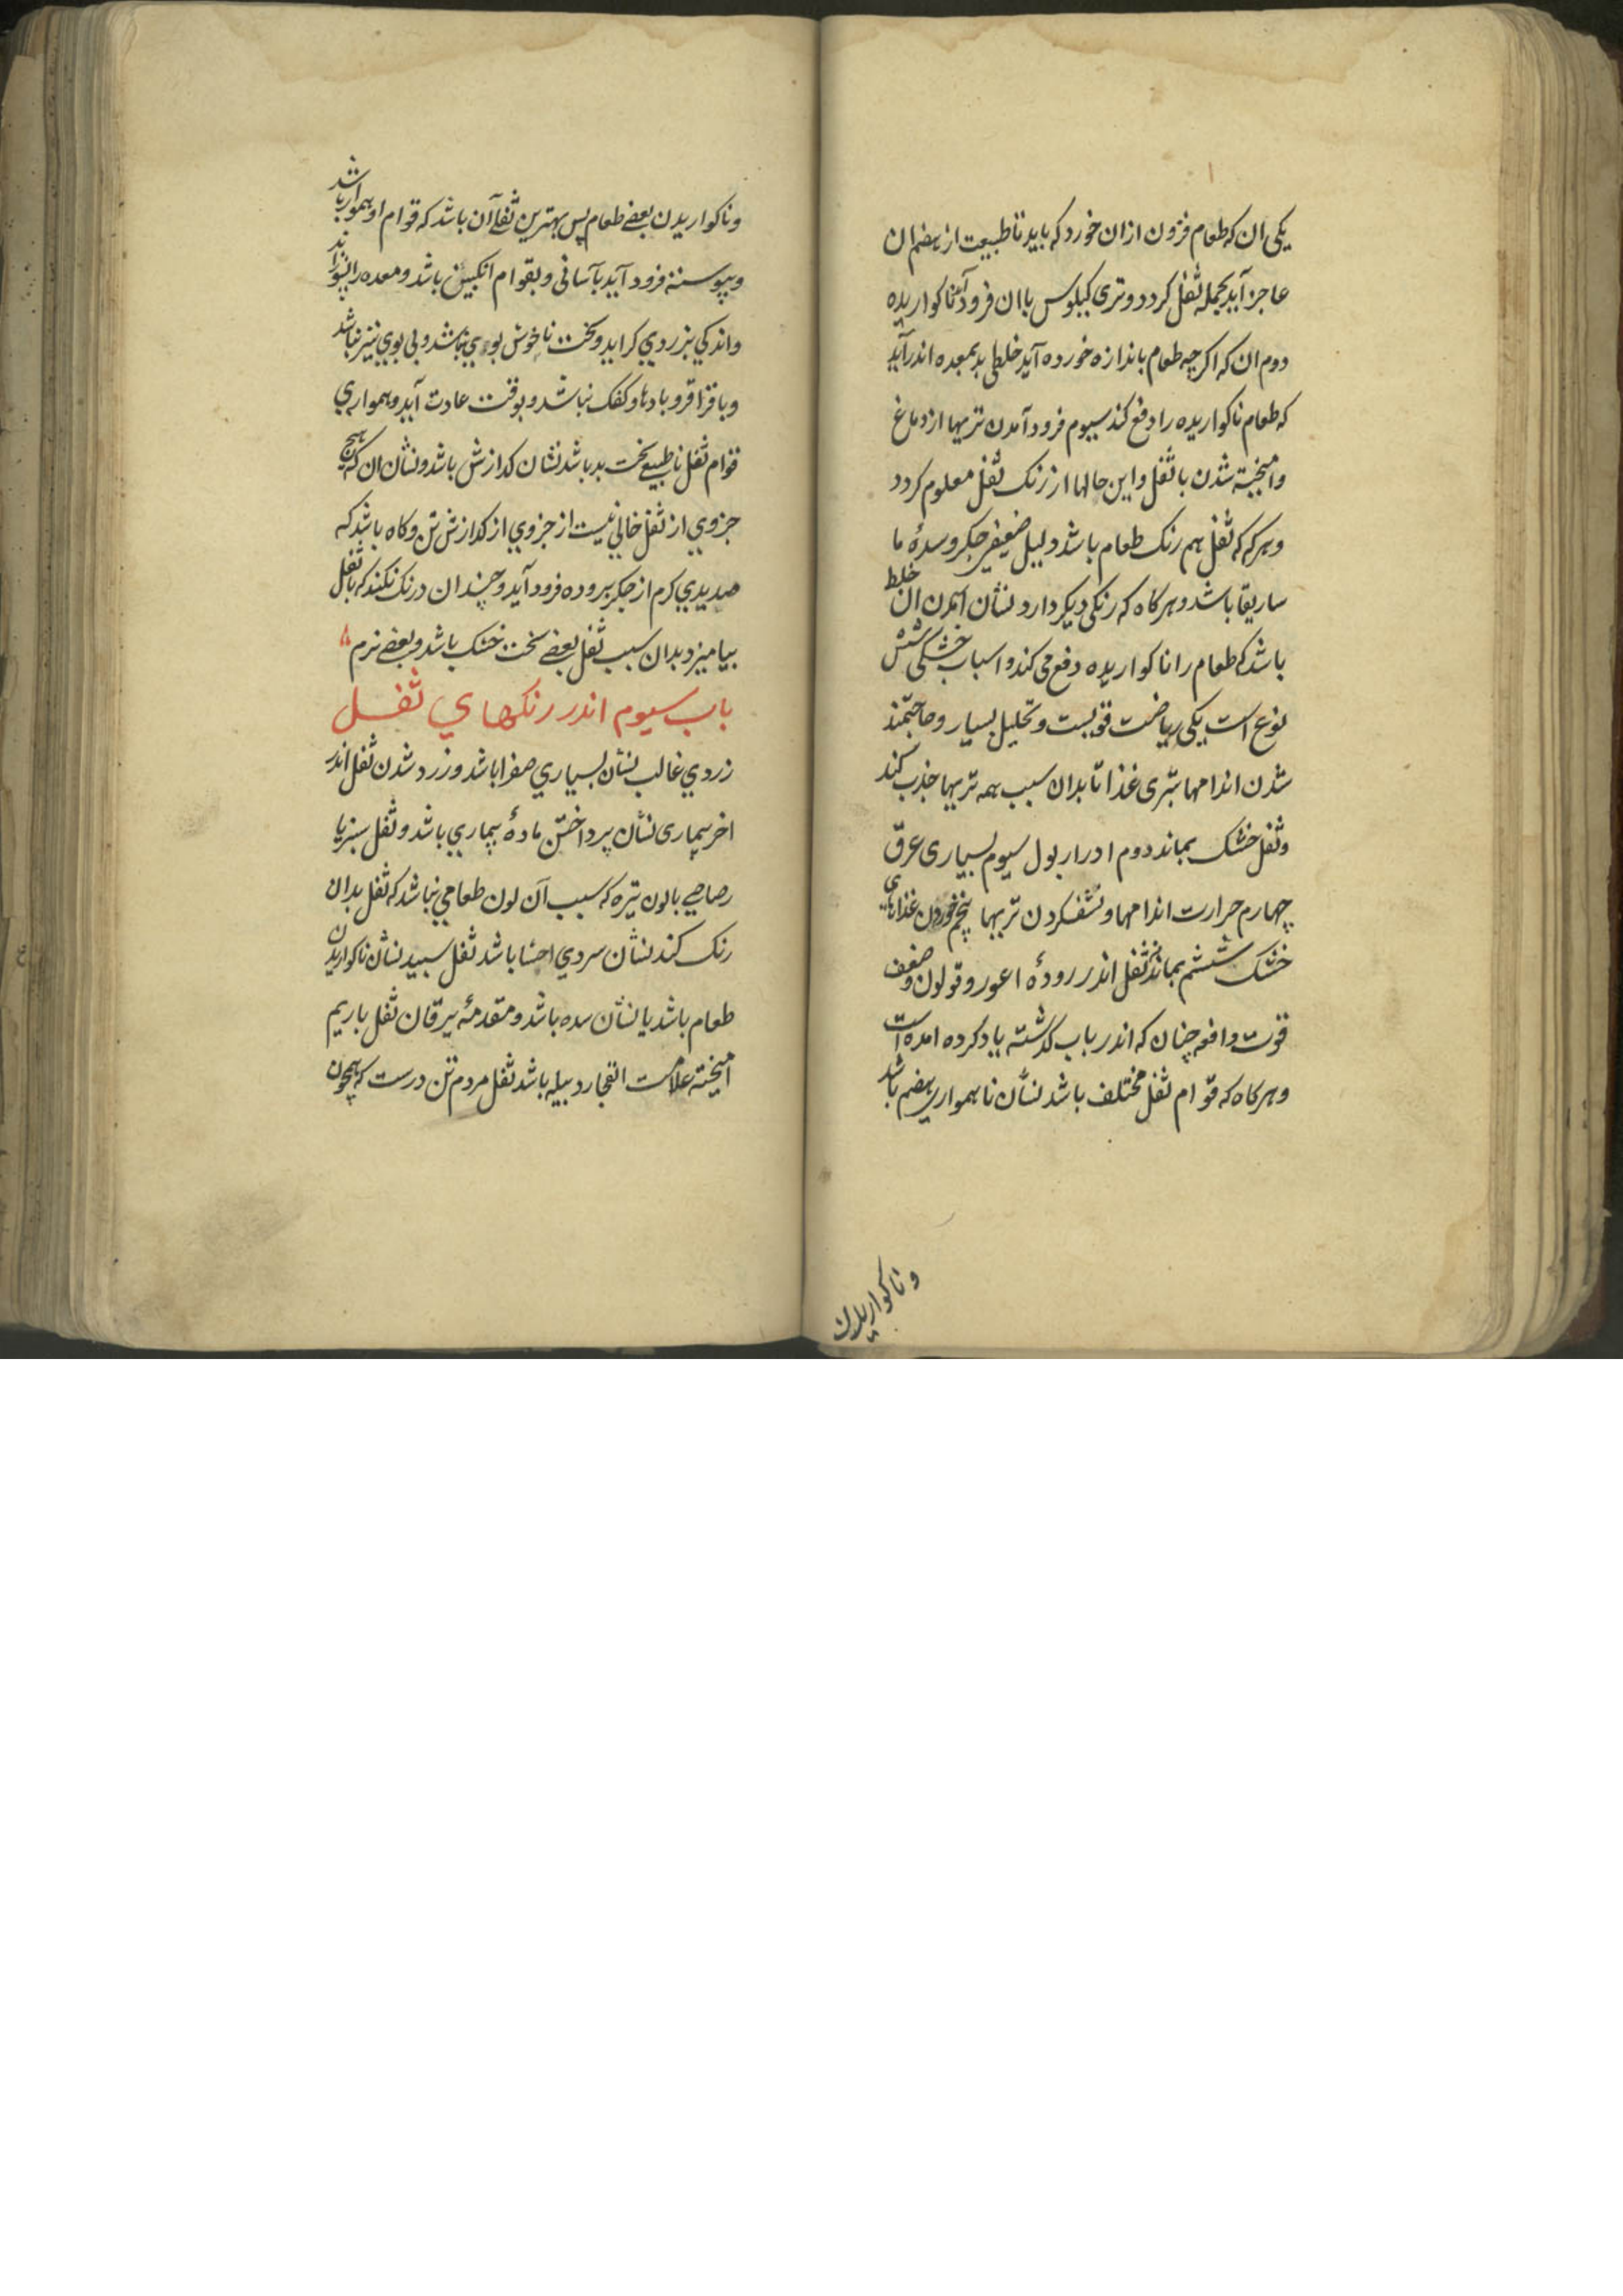 یکی ان که طعام فزون ازان خورد که باید تا طبیعت از هضم ان
عاجز آید بجمله ثفل کردد و تری کیلوس با ان فرود آید ناکواریده
دوم ان که اکرچه طعام باندازه خورده آید خلطی بد بمعده اندر آید
که طعام ناکواریده را دفع کند سیوم فرود آمدن تریها از دماغ
وامیخته شدن با ثفل واین حالها از رنک ثفل معلوم کردد
وهرکه که ثفل هم رنک طعام باشد دلیل ضعیفی جکر وسدهٔ ما
ساریقا باشد وهرکاه که رنکی دیکر دارد نشان آمدن ان خلط
باشد که طعام را ناکواریده دفع می کند واسباب خشکی شش
نوع است یکی ریاضت قویست وتحلیل بسیار وحاجتمند
شدن اندامها بتری غذا تا بدان سبب همه تریها جذب کند
وثفل خشک بماند دوم ادرار بول سیوم بسیاری عرق
چهارم حرارت اندامها ونشف کردن تریها پنجم خوردن غذاهای
خشک ششم بماندن ثفل اندر رودهٔ اعور وقولون وضعف
قوت دافعه چنان که اندر باب کذشته یاد کرده امده است
وهرکاه که قوام ثفل مختلف باشد نشان ناهمواری هضم باشد
وناکواریدن
وناکواریدن بعضی طعام پس بهترین ثفل آن باشد که قوام او هموار باشد
وپیوسته فرود آید بآسانی وبقوام انکبین باشد ومعده را نسوزاند
واندکی بزردی کراید وسخت ناخوش بوی نباشد وبی بوی نیز نباشد
وباقراقر وبادها وکفک نباشد وبوقت عادت آید وهمواری
قوام ثفل ناطبیعی سخت بد باشد نشان کدازش باشد ونشان ان که هیچ
جزوی از ثفل خالی نیست از جزوی از کدازش تن وکاه باشد که
صدیدی کرم از جکر بروده فرود آید وچندان درنک نکند که با ثفل
بیامیزد بدان سبب ثفل بعضی سخت خشک باشد وبعضی نرم
باب سیوم اندر رنکهای ثفل
زردی غالب نشان بسیاری صفرا باشد وزرد شدن ثفل اندر
اخر بیماری نشان پرداختن مادهٔ بیماری باشد وثفل سبز یا
رصاصی یا لون تیره که سبب آن لون طعامی نباشد که ثفل بدان
رنک کند نشان سردی احشا باشد ثفل سپید نشان ناکواریدن
طعام باشد یا نشان سده باشد ومقدمهٔ یرقان ثفل با ریم
امیخته علامت انفجار دبیله باشد ثفل مردم تن درست که همچون